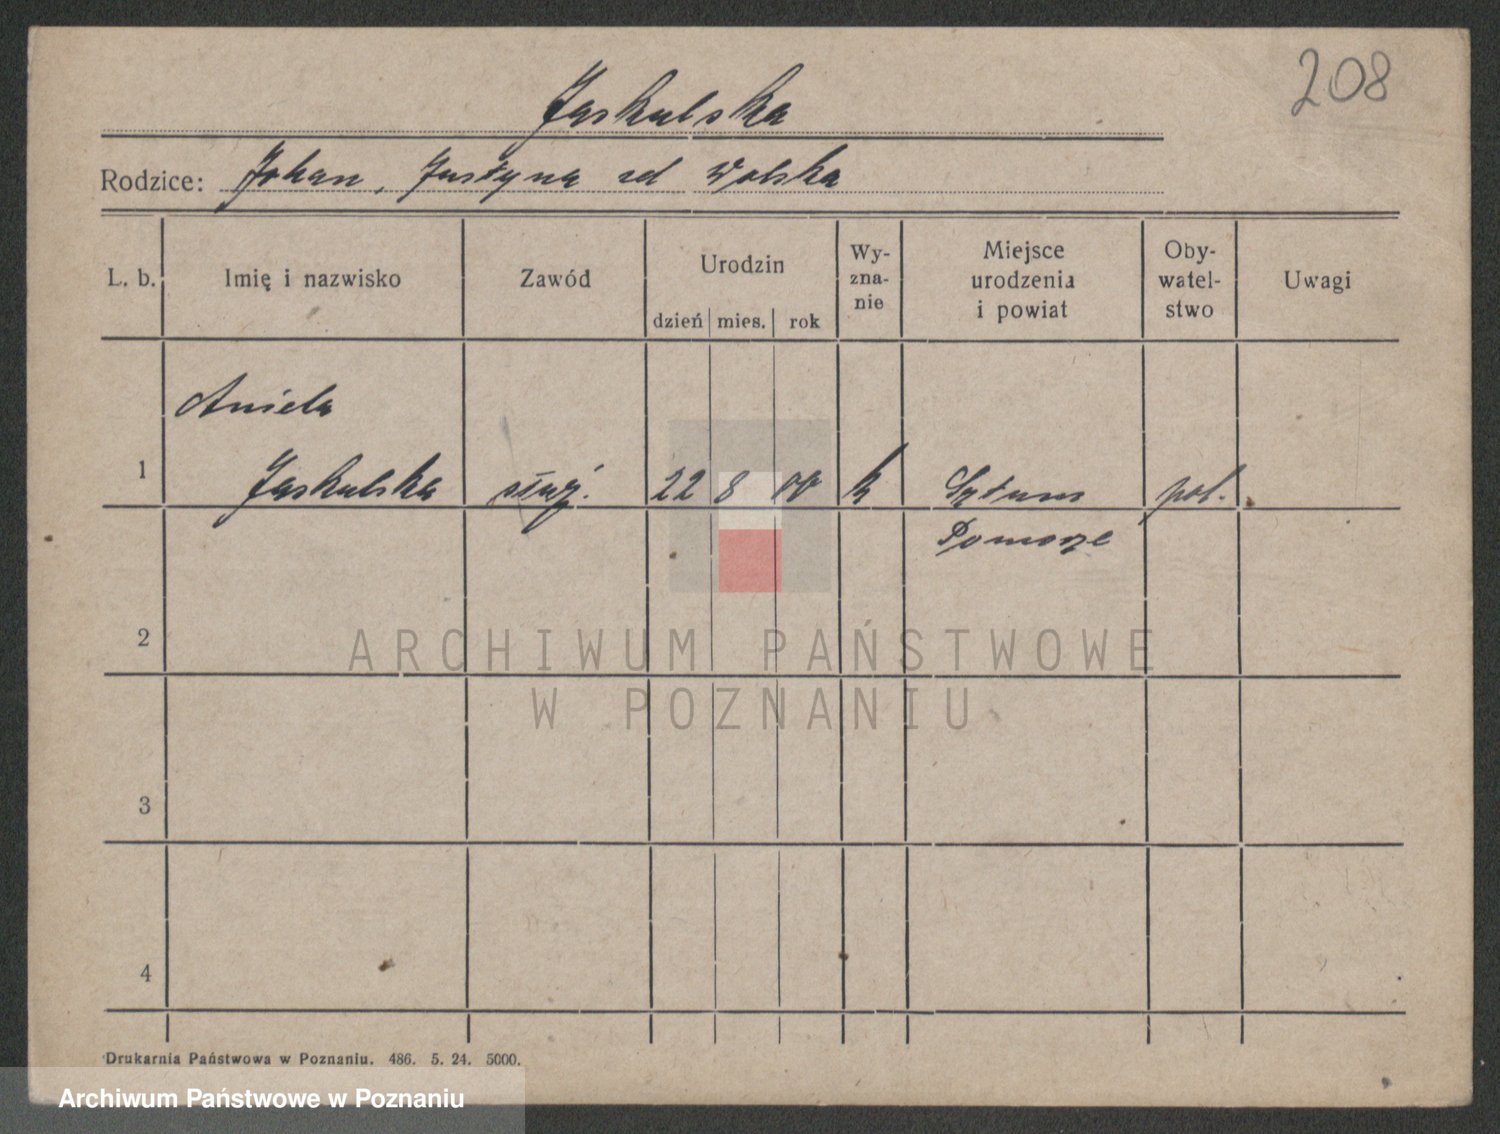 208
Jaskulska
Rodzice: Johan, Justyna zd Wolska
L. b.
Imię i nazwisko
Zawód
Urodzin
dzień mies. rok
Wy-
zna-
nie
Miejsce
urodzenia
i powiat
Oby-
watel-
stwo
Uwagi
Aniela
1 Jaskulska służ. 22 8 00 k Sztum pol.
Pomorze
2
ARCHIWUM PAŃSTWOWE
W POZNANIU
3
4
Drukarnia Państwowa w Poznaniu. 486. 5. 24. 5000.
Archiwum Państwowe w Poznaniu